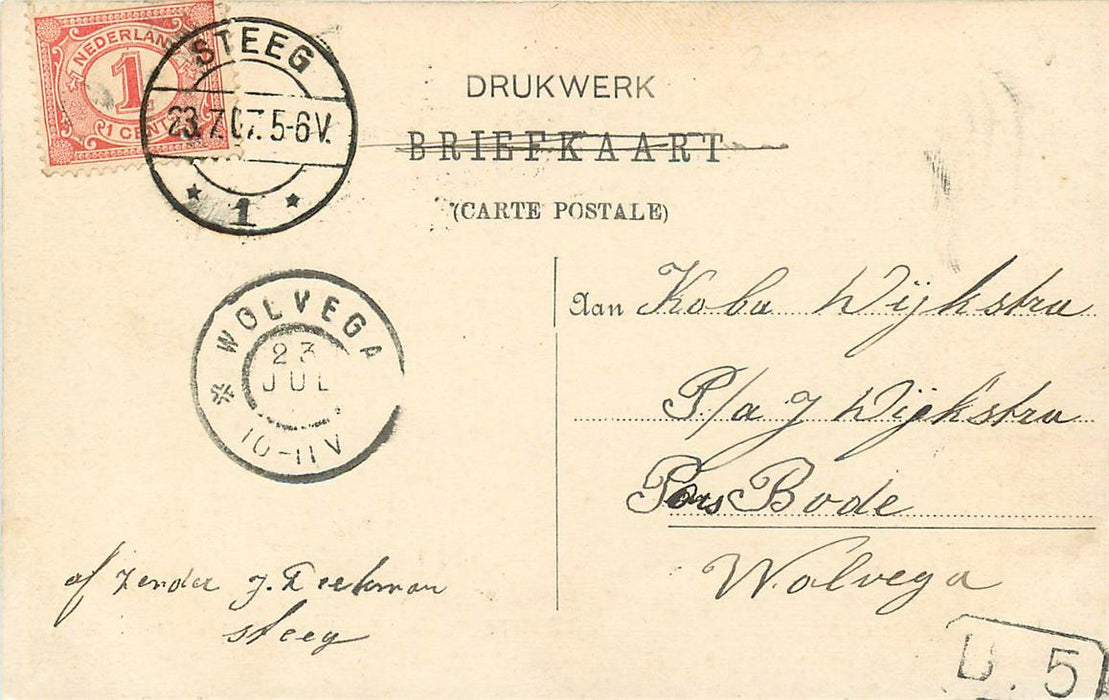 NEDERLAND
1
1 CENT
STEEG
23.7.07.5-6V.
1
DRUKWERK
BRIEFKAART
(CARTE POSTALE)
WOLVEGA
23
JUL
10-11V
Aan Koba Wijkstra
P/a J Wijkstra
Bode
Wolvega
afzender J.
Steeg
5